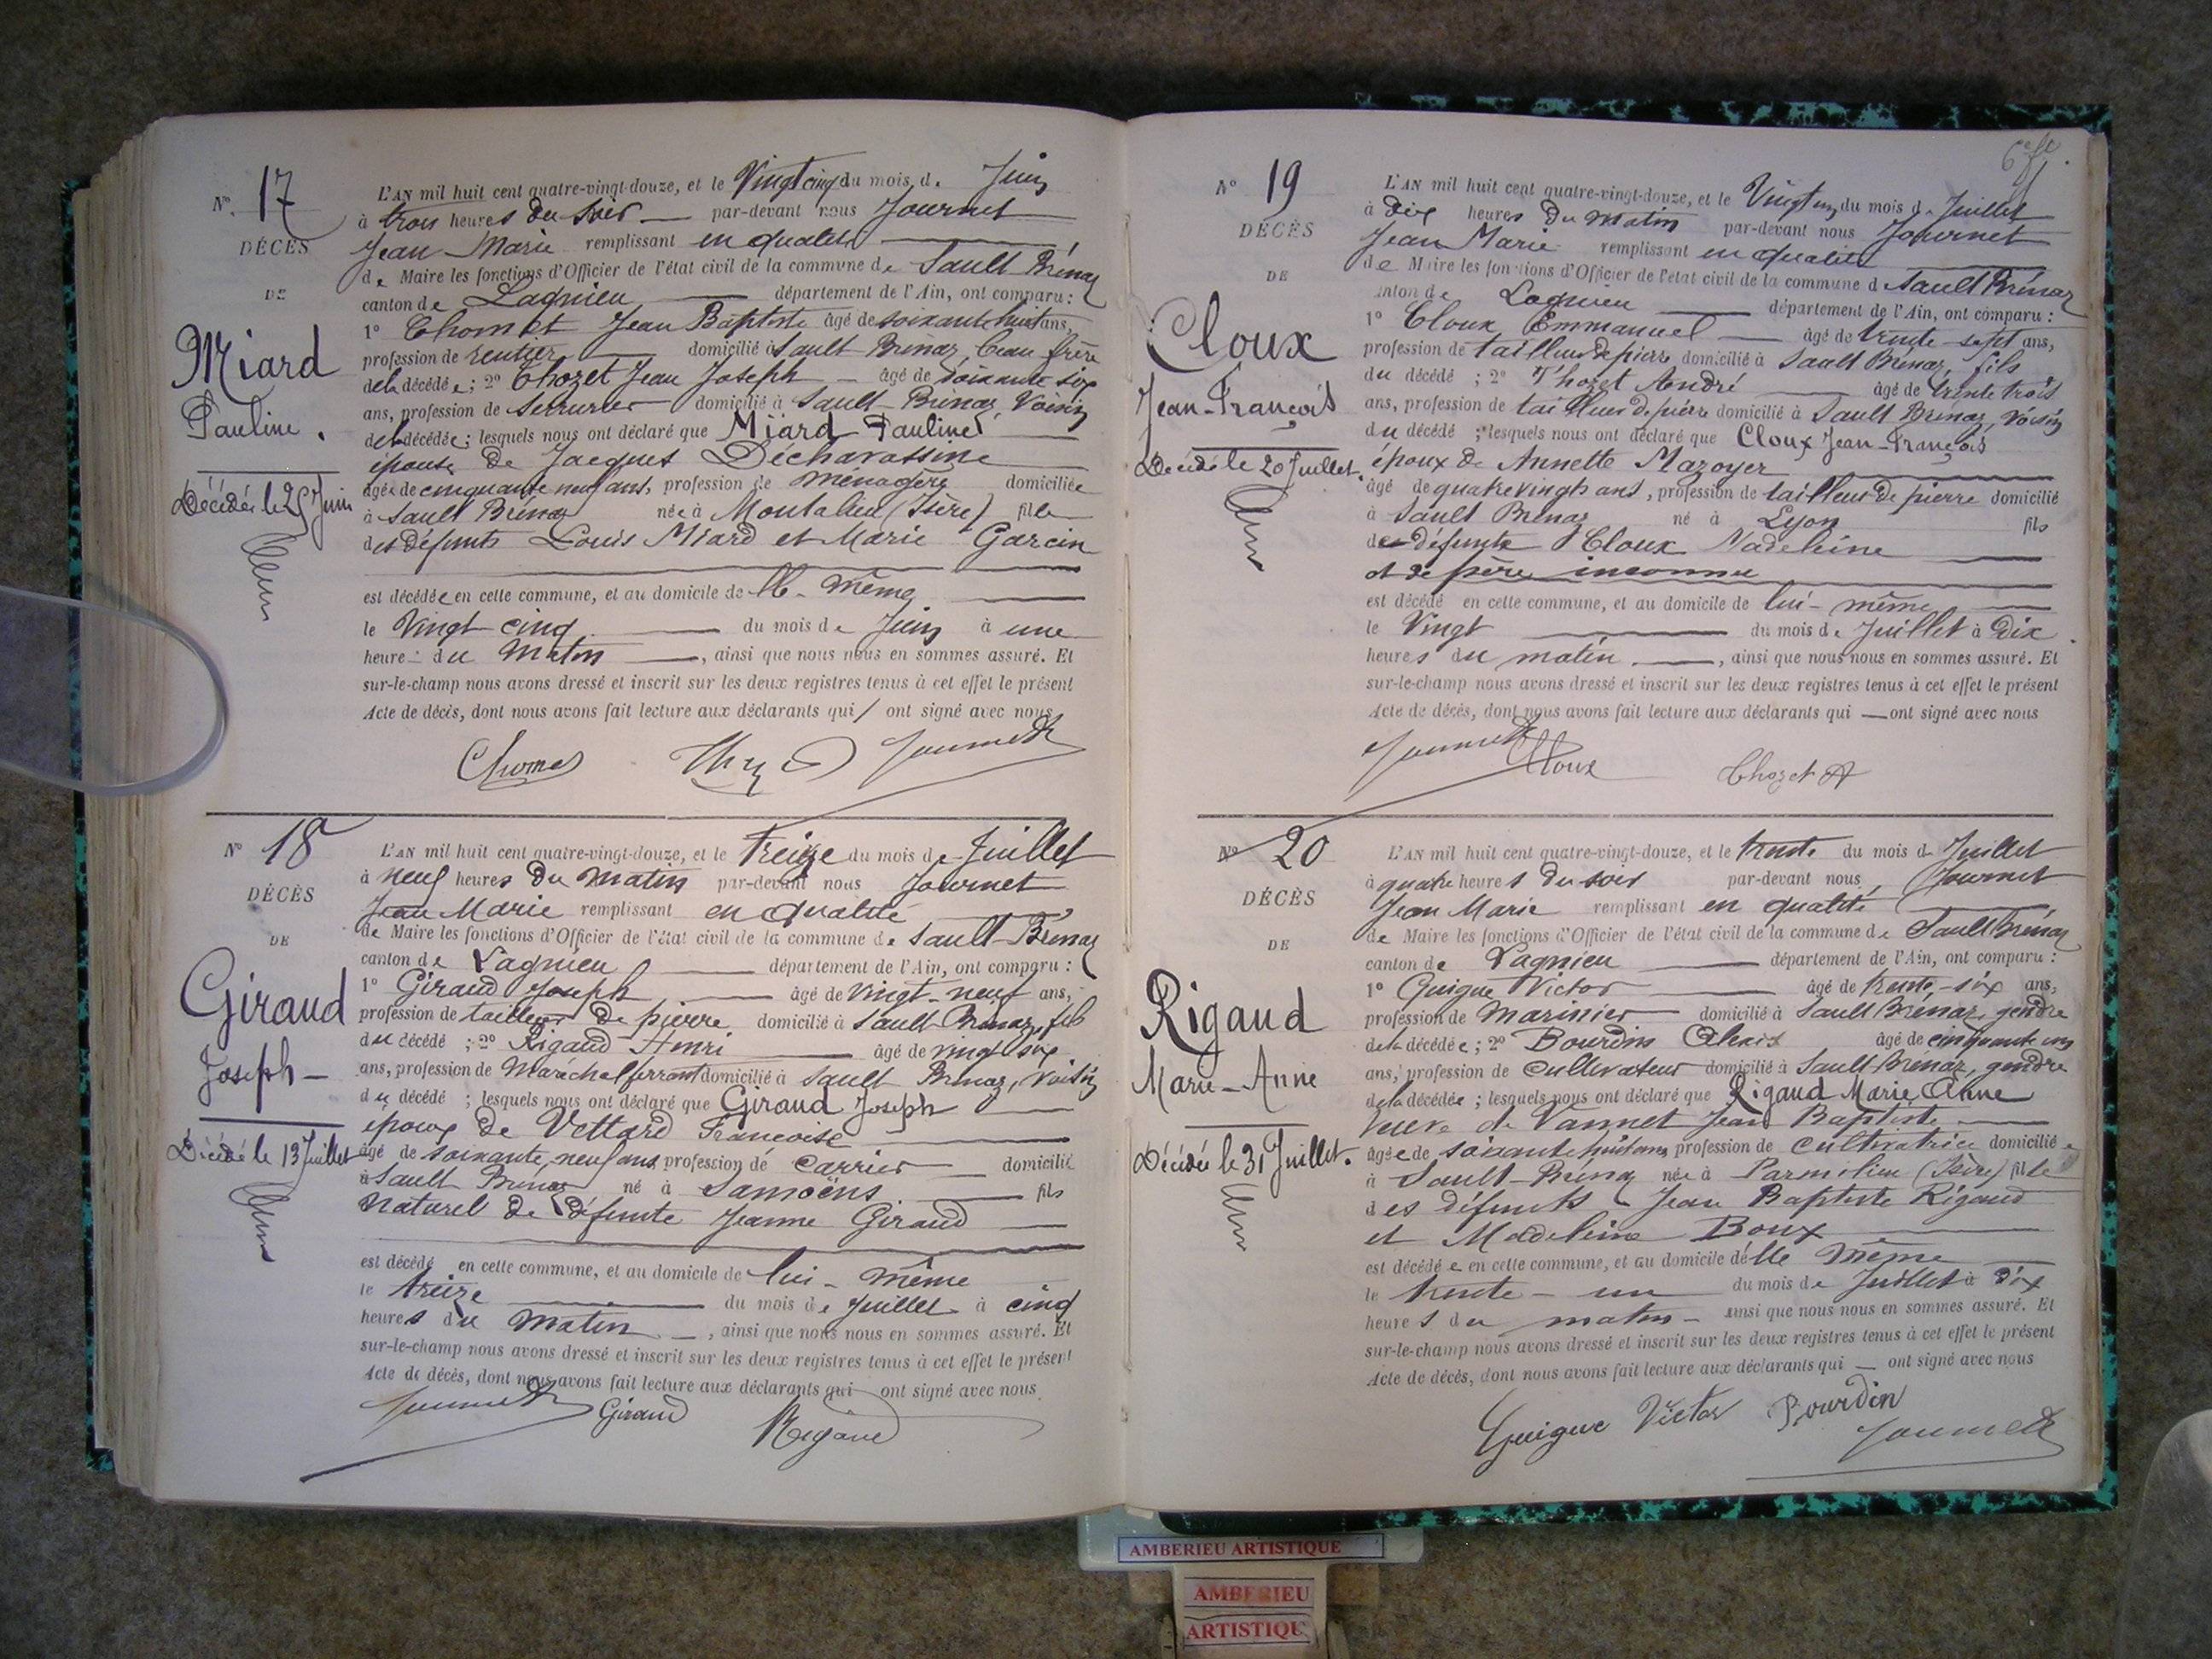 N° 17
DÉCÈS
DE
Miard
Pauline.
Décédée le 25 Juin
L'AN mil huit cent quatre-vingt-douze, et le Vingt cinq du mois de Juin
à trois heures du soir — par-devant nous Journet
Jean Marie remplissant en qualité
de Maire les fonctions d'Officier de l'état civil de la commune de Sault-Brénaz
canton de Lagnieu département de l'Ain, ont comparu :
1° Chomet Jean Baptiste âgé de soixante huit ans,
profession de rentier domicilié à Sault-Brénaz, beau frère
de la décédée ; 2° Thozet Jean Joseph — âgé de soixante six
ans, profession de serrurier domicilié à Sault-Brénaz, Voisin
de la décédée ; lesquels nous ont déclaré que Miard Pauline
épouse de Jacques Décharassine
âgée de cinquante neuf ans, profession de Ménagère domiciliée
à Sault Brénaz née à Montalieu (Isère) fille
des défunts Louis Miard et Marie Garcin
est décédée en cette commune, et au domicile de elle-même
le Vingt-cinq du mois de Juin à une
heure du Matin —, ainsi que nous nous en sommes assuré. Et
sur-le-champ nous avons dressé et inscrit sur les deux registres tenus à cet effet le présent
Acte de décès, dont nous avons fait lecture aux déclarants qui / ont signé avec nous
Chomet Journet
N° 18
DÉCÈS
DE
Giraud
Joseph —
Décédé le 13 Juillet
L'AN mil huit cent quatre-vingt-douze, et le Treize du mois de Juillet
à neuf heures du Matin par-devant nous Journet
Jean Marie remplissant en qualité
de Maire les fonctions d'Officier de l'état civil de la commune de Sault-Brénaz
canton de Lagnieu département de l'Ain, ont comparu :
1° Giraud Joseph âgé de vingt-neuf ans,
profession de tailleur de pierre domicilié à Sault-Brénaz, fils
du décédé ; 2° Rigaud Henri âgé de vingt six
ans, profession de Maréchal ferrant domicilié à Sault Brénaz, Voisin
du décédé ; lesquels nous ont déclaré que Giraud Joseph
époux de Vettard Françoise
âgé de soixante, neuf ans profession de Carrier domicilié
à Sault Brénaz né à Samoëns fils
Naturel de défunte Jeanne Giraud
est décédé en cette commune, et au domicile de lui-même
le treize du mois de Juillet à cinq
heures du Matin —, ainsi que nous nous en sommes assuré. Et
sur-le-champ nous avons dressé et inscrit sur les deux registres tenus à cet effet le présent
Acte de décès, dont nous avons fait lecture aux déclarants qui — ont signé avec nous
Journet Giraud Rigaud
N° 19
DÉCÈS
DE
Cloux
Jean-François
Décédé le 20 Juillet.
L'AN mil huit cent quatre-vingt-douze, et le Vingt un du mois de Juillet
à dix heures du Matin par-devant nous Journet
Jean Marie remplissant en qualité
de Maire les fonctions d'Officier de l'état civil de la commune de Sault Brénaz
canton de Lagnieu département de l'Ain, ont comparu :
1° Cloux Emmanuel âgé de trente-sept ans,
profession de tailleur de pierre domicilié à Sault Brénaz, fils
du décédé ; 2° Thozet André âgé de trente trois
ans, profession de tailleur de pierre domicilié à Sault Brénaz, Voisin
du décédé ; lesquels nous ont déclaré que Cloux Jean-François
époux de Annette Mazoyer
âgé de quatre vingts ans, profession de tailleur de pierre domicilié
à Sault Brénaz né à Lyon fils
de défunte Cloux Madeleine
et de père inconnu
est décédé en cette commune, et au domicile de lui-même
le Vingt du mois de Juillet à Dix
heures du matin —, ainsi que nous nous en sommes assuré. Et
sur-le-champ nous avons dressé et inscrit sur les deux registres tenus à cet effet le présent
Acte de décès, dont nous avons fait lecture aux déclarants qui — ont signé avec nous
Journet Cloux Thozet A
N° 20
DÉCÈS
DE
Rigaud
Marie-Anne
Décédée le 31 Juillet.
L'AN mil huit cent quatre-vingt-douze, et le trente du mois de Juillet
à quatre heures du soir par-devant nous, Journet
Jean Marie remplissant en qualité
de Maire les fonctions d'Officier de l'état civil de la commune de Sault Brénaz
canton de Lagnieu département de l'Ain, ont comparu :
1° Guigue Victor âgé de trente-six ans,
profession de Marinier domicilié à Sault Brénaz, gendre
de la décédée ; 2° Bourdin Alexis âgé de cinquante un
ans, profession de Cultivateur domicilié à Sault-Brénaz, gendre
de la décédée ; lesquels nous ont déclaré que Rigaud Marie Anne
Veuve de Vannet Jean Baptiste
âgée de soixante huit ans profession de Cultivatrice domiciliée
à Sault-Brénaz née à Parmilieu (Isère) fille
des défunts Jean Baptiste Rigaud
et Madeleine Boux
est décédée en cette commune, et au domicile d'elle Même
le trente-un du mois de Juillet à dix
heures du matin — ainsi que nous nous en sommes assuré. Et
sur-le-champ nous avons dressé et inscrit sur les deux registres tenus à cet effet le présent
Acte de décès, dont nous avons fait lecture aux déclarants qui — ont signé avec nous
Guigue Victor Bourdin
Journet
AMBERIEU ARTISTIQUE
AMBERIEU
ARTISTIQUE